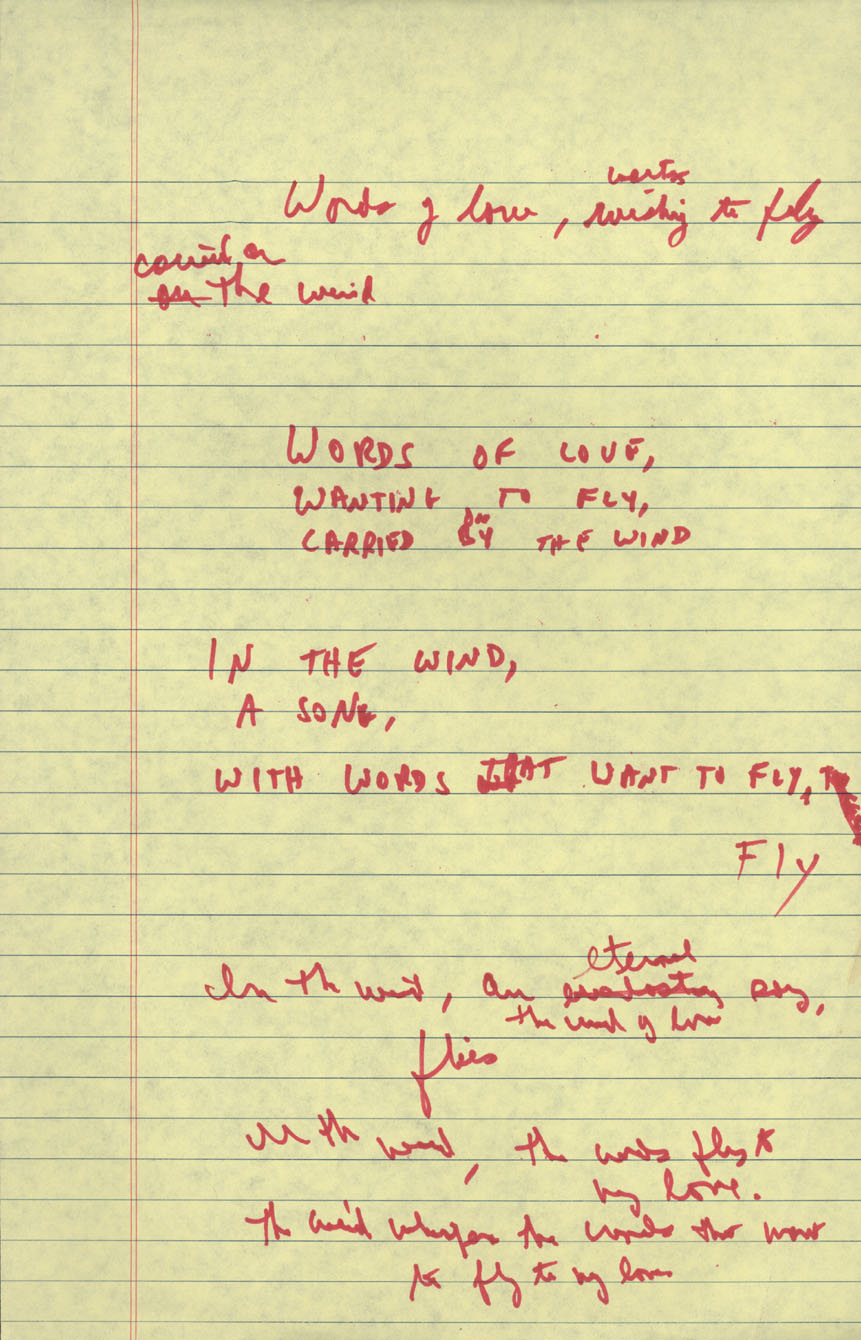 wants
Words of love, wishing to fly
carried on
on the wind
WORDS OF LOVE,
WANTING TO FLY,
on
CARRIED BY THE WIND
IN THE WIND,
A SONG,
WITH WORDS THAT WANT TO FLY, TO
Fly
eternal
In the wind, an everlasting song,
the wind of love
flies
In the wind, the words fly to
my love.
The wind whispers the words that want
to fly to my love